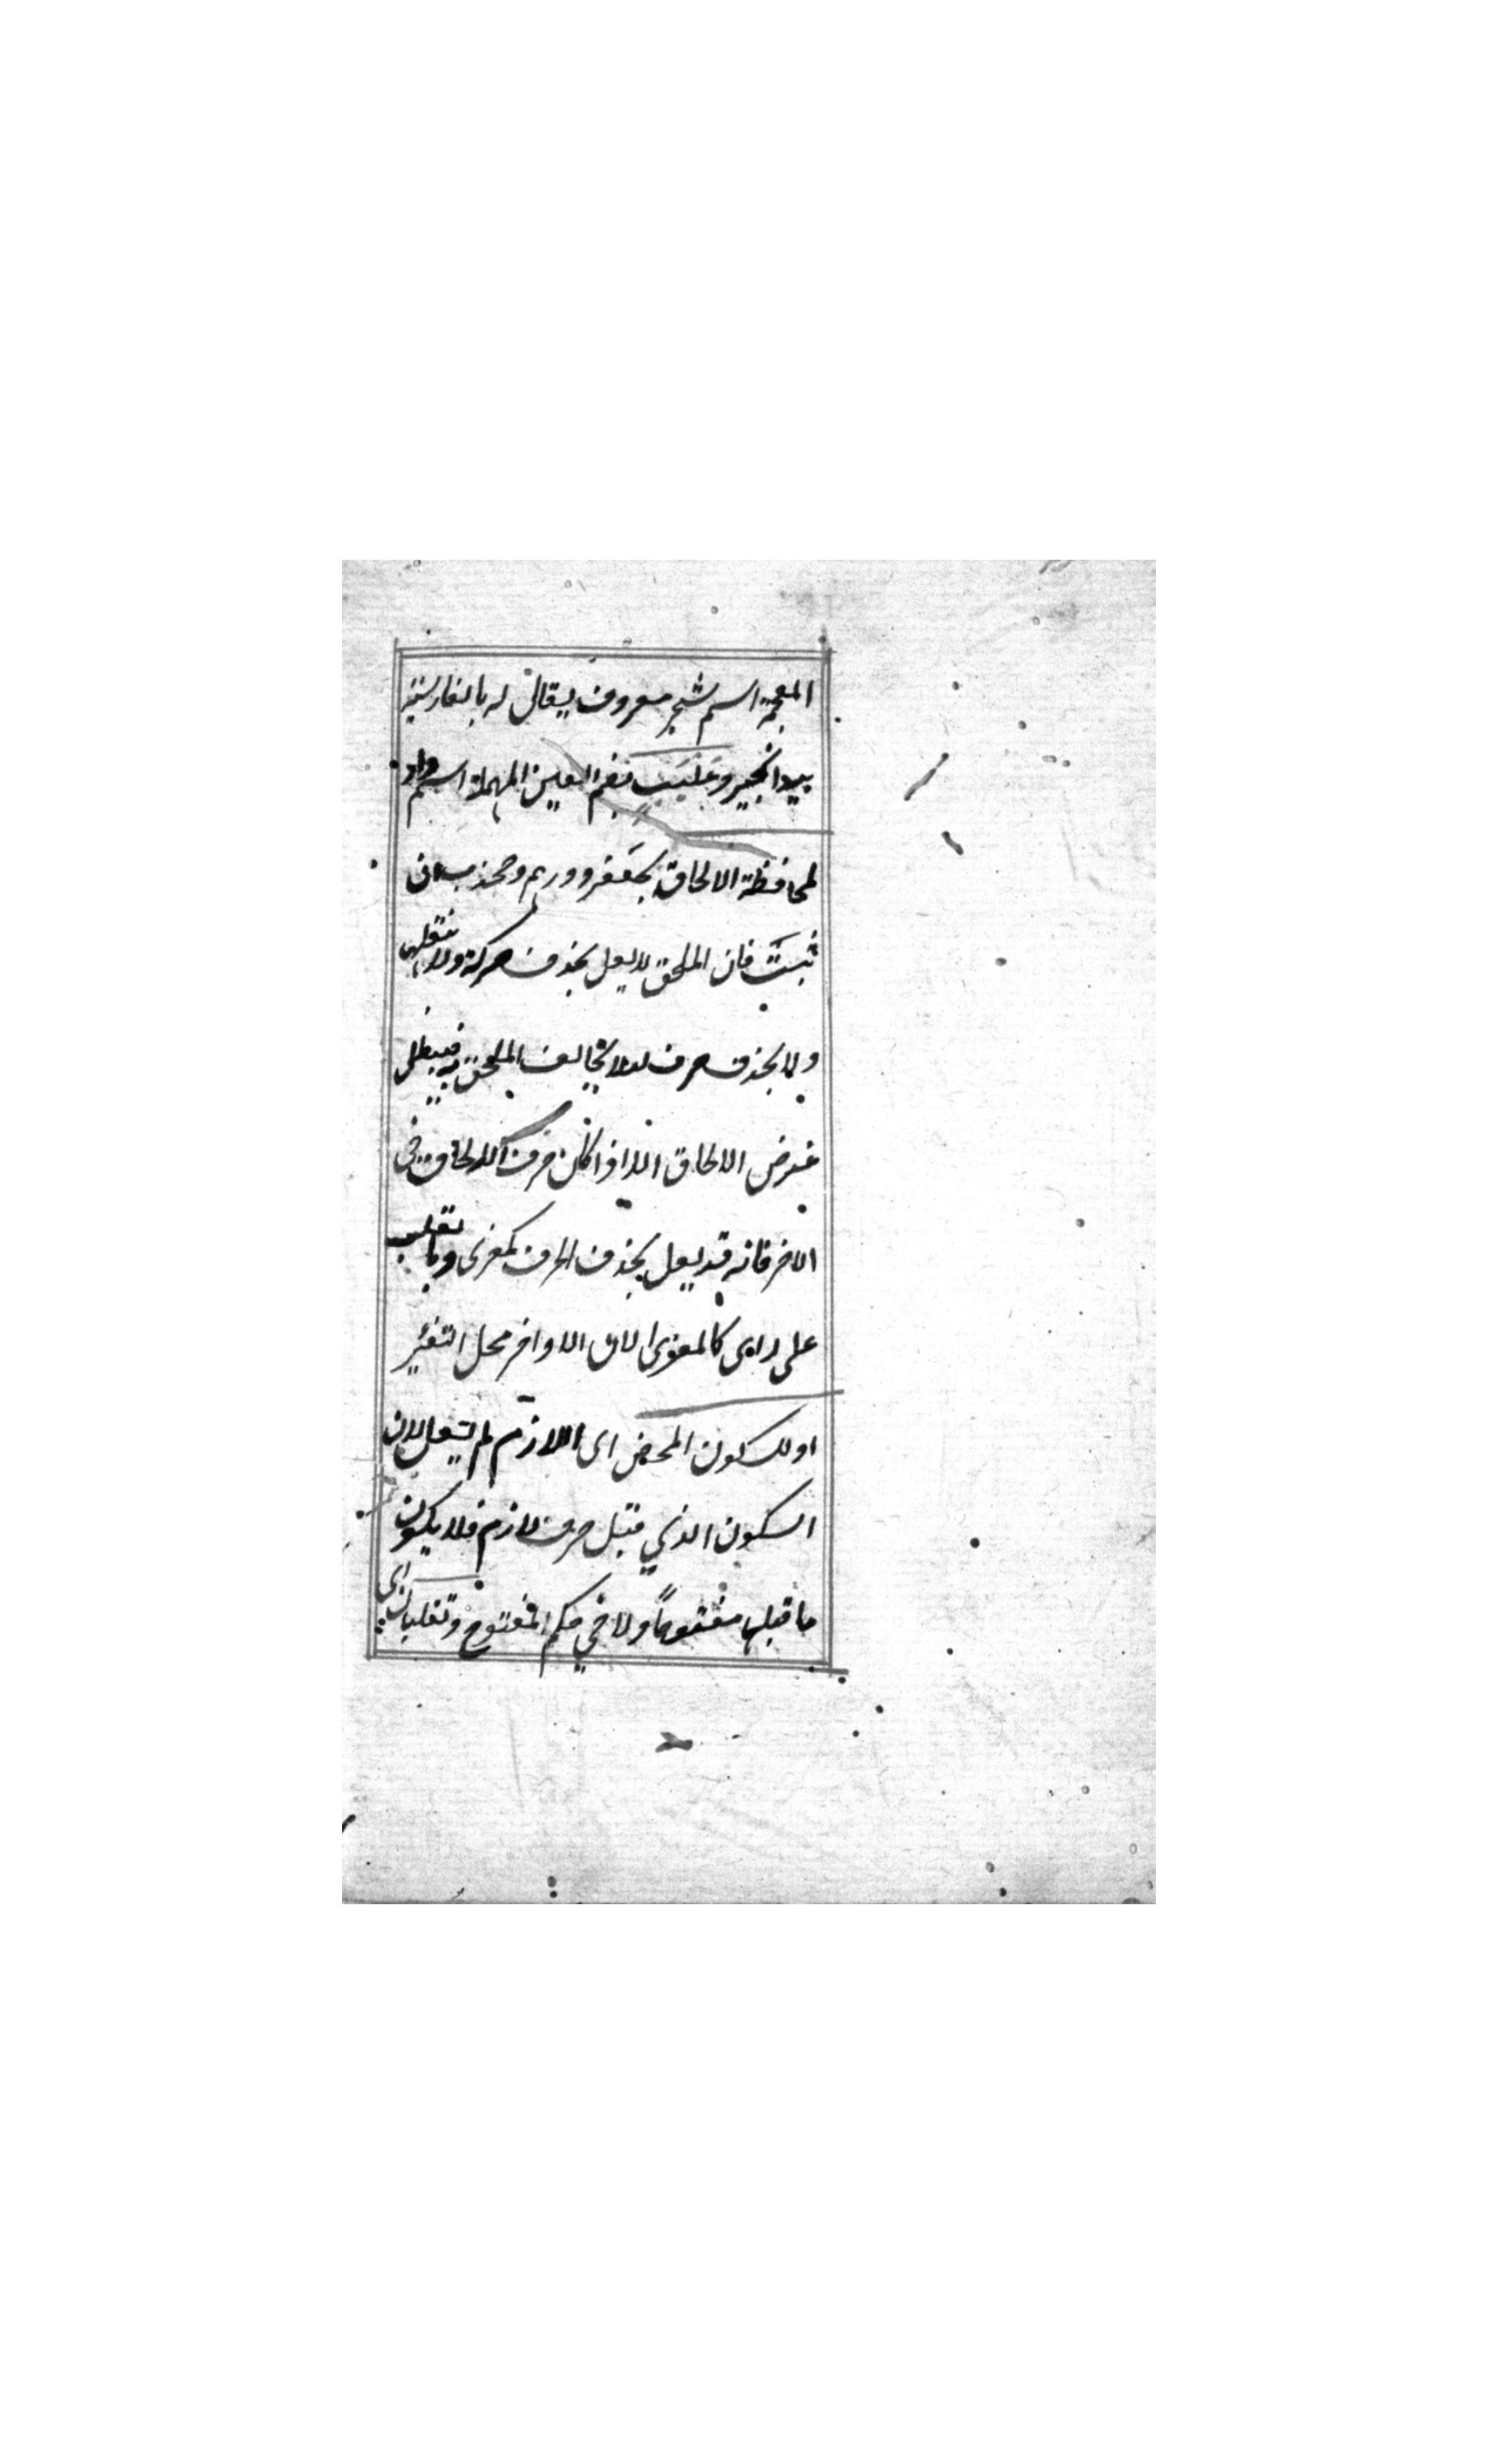 المعجمة اسم شجر معروف يقال له بالفارسية
بيدانجير وعليب بضم العين المهملة اسم واد
لمحافظة الالحاق بجعفر ودرهم وجخذب ان
ثبت فان الملحق لا يعل بحذف حركة ولا بنقلها
ولا بحذف حرف لئلا يخالف الملحق به فيبطل
غرض الالحاق الا اذا كان حرف الالحاق في
الاخر فانه قد يعل بحذف الحرف كمعزى وبا لقلب
على راى كالمعزى لان الاواخر محل التغير
او لسكون المحض اى اللازم لم تعل لان
السكون الذي قبل حرف لازم فلا يكون
ما قبلها مفتوحاً ولا في حكم المفتوح وتقلبان اى